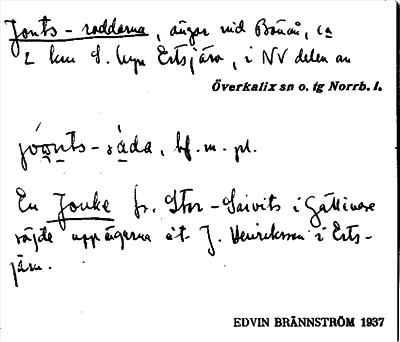 Jonts-raddarna, ängar vid Bönån, ca
2 km S. byn Ertsjärv, i NV delen av
Överkalix sn o. tg Norrb. l.
jóọnts-ráda, bf. m. pl.
En Jonke fr. Stor-Saivits i Gällivare
röjde upp ängarna åt J. Henriksson i Erts-
järv.
EDVIN BRÄNNSTRÖM 1937